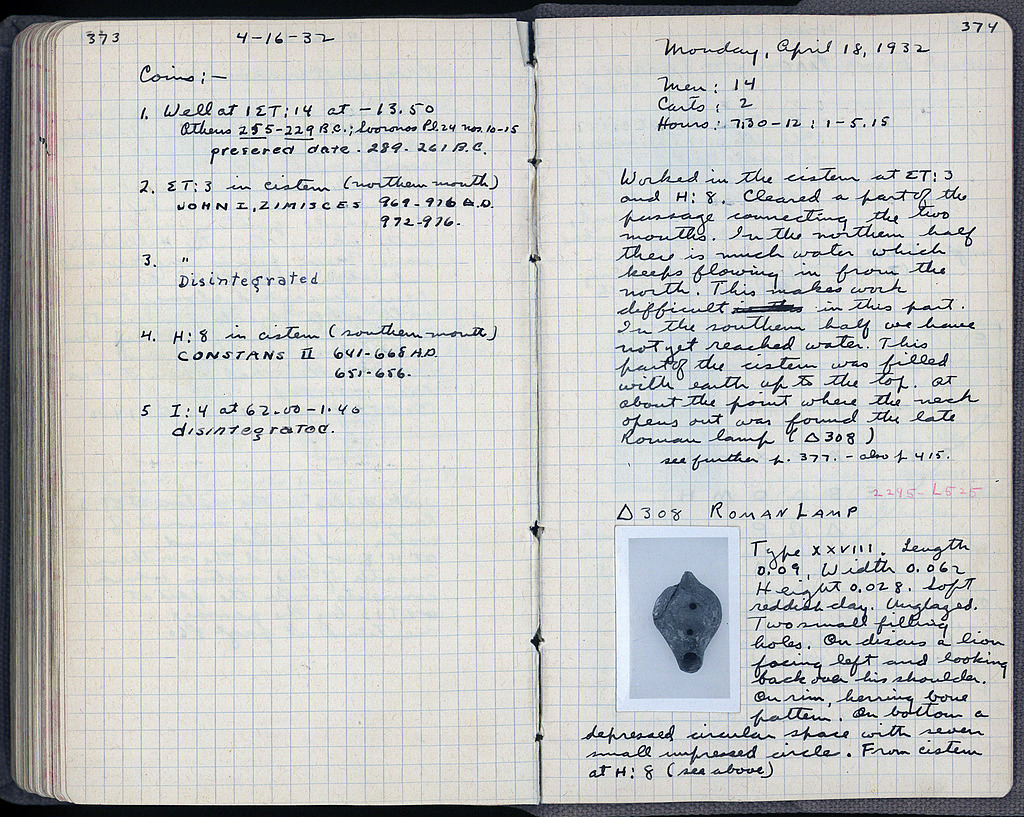 373 4-16-32
Coins:—
1. Well at 1ΣT:14 at -13.50
Athens 255-229 B.C.; Svoronos Pl.24 nos. 10-15
prefered date. 289-261 B.C.
2. ΣT:3 in cistern (northern mouth)
JOHN I, ZIMISCES 969-976 A.D.
972-976.
3. "
Disintegrated
4. H:8 in cistern (southern mouth)
CONSTANS II 641-668 A.D.
651-656.
5 I:4 at 62.00-1.40
disintegrated.
374
Monday, April 18, 1932
Men: 14
Carts: 2
Hours: 7:30-12; 1-5.15
Worked in the cistern at ΣT:3
and H:8. Cleared a part of the
passage connecting the two
mouths. In the northern half
there is much water which
keeps flowing in from the
north. This makes work
difficult in this part.
In the southern half we have
not yet reached water. This
part of the cistern was filled
with earth up to the top. At
about the point where the neck
opens out was found the late
Roman lamp (Δ308)
see further p. 377. - also p 415.
2245-L525
Δ308 ROMAN LAMP
Type XXVIII. Length
0.09, Width 0.062
Height 0.028. Soft
reddish clay. Unglazed.
Two small filling
holes. On discus a lion
facing left and looking
back over his shoulder.
On rim, herring bone
pattern. On bottom a
depressed circular space with seven
small impressed circle. From cistern
at H:8 (see above)